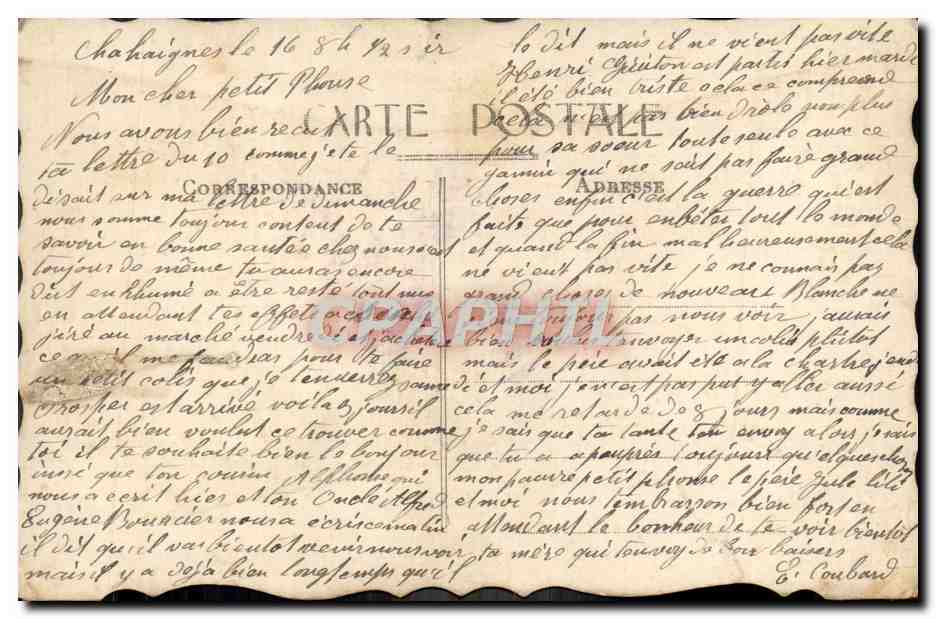 Chahaignes le 16 8h 1/2 s ir
Mon cher petit Phonse
CARTE POSTALE
Nous avons bien recu
ta lettre du 10 comme j'ete le
CORRESPONDANCE
désait sur ma lettre de dimanche
nous somme toujour content de te
savoir en bonne santée chez nous s'est
toujour de même tu auras encore
dut enRhumé a être resté tout nus
en attendant tes effets
j'iré au marché vendredi j'achete
ce qu'il me faudras pour te faire
un petit colis que je tenverrez
Prosper est arrivé voila 2 jours il
aurait bien voulut ce trouver comme
toi il te souhaite bien le bonjour
insé que ton cousin Alphonse qui
nous a ecrit hier et ton Oncle Alfred
Eugène Bourcier nous a écris ce matin
il dit qu'il vas bientot venir nous voir
mais il y a déja bien longtemps qu'il
le dit mais il ne vient pas vite
Henri est partis hier mardi
il été bien triste cela ce comprend
cela n'est pas bien drôle non plus
pour sa soeur toute seule avec ce
gamin qui ne sait pas faire grand
ADRESSE
choses enfin c'est la guerre qui est
faite que pour enbéter tout le monde
et quand la fin malheureusement cela
ne vient pas vite je ne connais pas
grand choses de nouveau Blanche ne
pas nous voir j'aurais
bien envoyer un colis plutot
mais le père avait été a la chartre jeudi
et moi j'en est pas put y aller aussi
cela me retarde de 8 jours mais comme
je sais que ta tante ton envoy alors je sais
que tu a apoupres toujours quelque chose
mon pauvre petit phonse le père Jule lili
et moi nous t'embrasson bien fort en
attendant le bonheur de te voir bientot
ta mère qui t'envoy de Bon baisers
E. Coubard
CPAPHIL